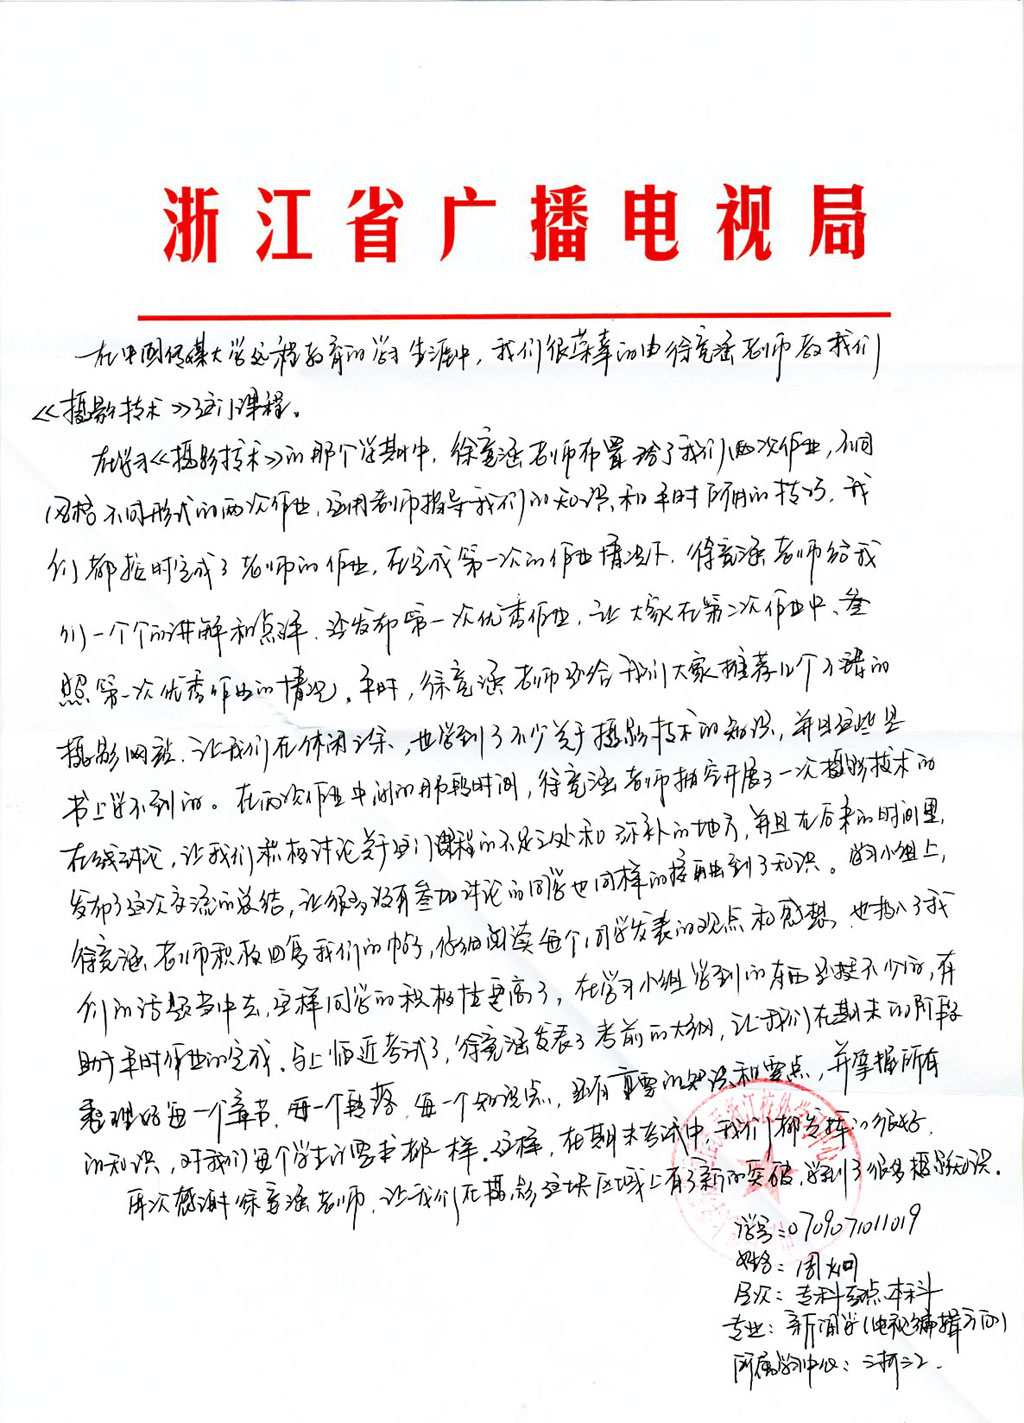 浙江省广播电视局
在中国传媒大学远程教育的学习生涯中，我们很荣幸的由徐竞涵老师教我们
《摄影技术》这门课程。
在学习《摄影技术》的那个学期中，徐竞涵老师布置给了我们两次作业，不同
风格不同形式的两次作业，运用老师指导我们的知识和平时所用的技巧，我
们都按时完成了老师的作业，在完成第一次的作业情况下，徐竞涵老师给我
们一个个的讲解和点评，还发布第一次优秀作业，让大家在第二次作业中、参
照第一次优秀作业的情况。平时，徐竞涵老师还给我们大家推荐几个不错的
摄影网站，让我们在休闲之余，也学到了不少关于摄影技术的知识，并且这些是
书上学不到的。在两次作业中间的那段时间，徐竞涵老师抽空开展了一次摄影技术的
在线讨论，让我们积极讨论关于这门课程的不足之处和弥补的地方，并且在后来的时间里，
发布了这次交流的总结，让很多没有参加讨论的同学也同样的接触到了知识。学习小组上，
徐竞涵老师积极回复我们的帖子，仔细阅读每个同学发表的观点和感想，也投入了我
们的话题当中去，这样同学的积极性更高了，在学习小组学到的东西是挺不少的，有
助于平时作业的完成。马上临近考试了，徐竞涵发表了考前的大纲，让我们在期末的阶段
整理好每一个章节，每一个段落，每一个知识点，还有重要的知识和要点，并掌握所有
的知识，对我们每个学生的要求都一样。这样，在期末考试中，我们都发挥的很好。
再次感谢徐竞涵老师，让我们在摄影这块区域上有了新的突破，学到了很多摄影知识。
学号：070907011019
姓名：周炯
层次：专科起点本科
专业：新闻学（电视编辑方向）
所属学习中心：浙江